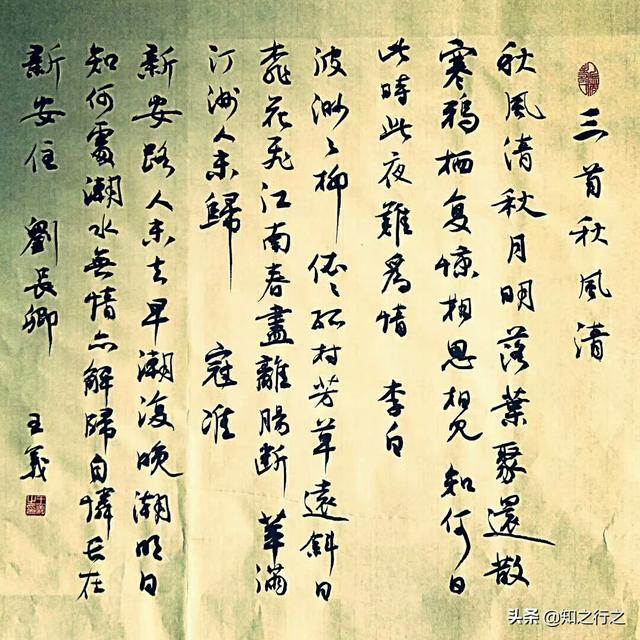 三首秋風清
秋風清秋月明落葉聚還散
寒鸦栖复惊相思相见知何日
此時此夜難為情 李白
波渺々柳依々孤村芳草遠斜日
杏花飛江南春盡離腸斷 苹滿
汀洲人未歸 寇准
新安路人来去早潮復晚潮明日
知何處潮水無情亦解歸自憐长在
新安住 劉長卿 王義
头条 @知之行之